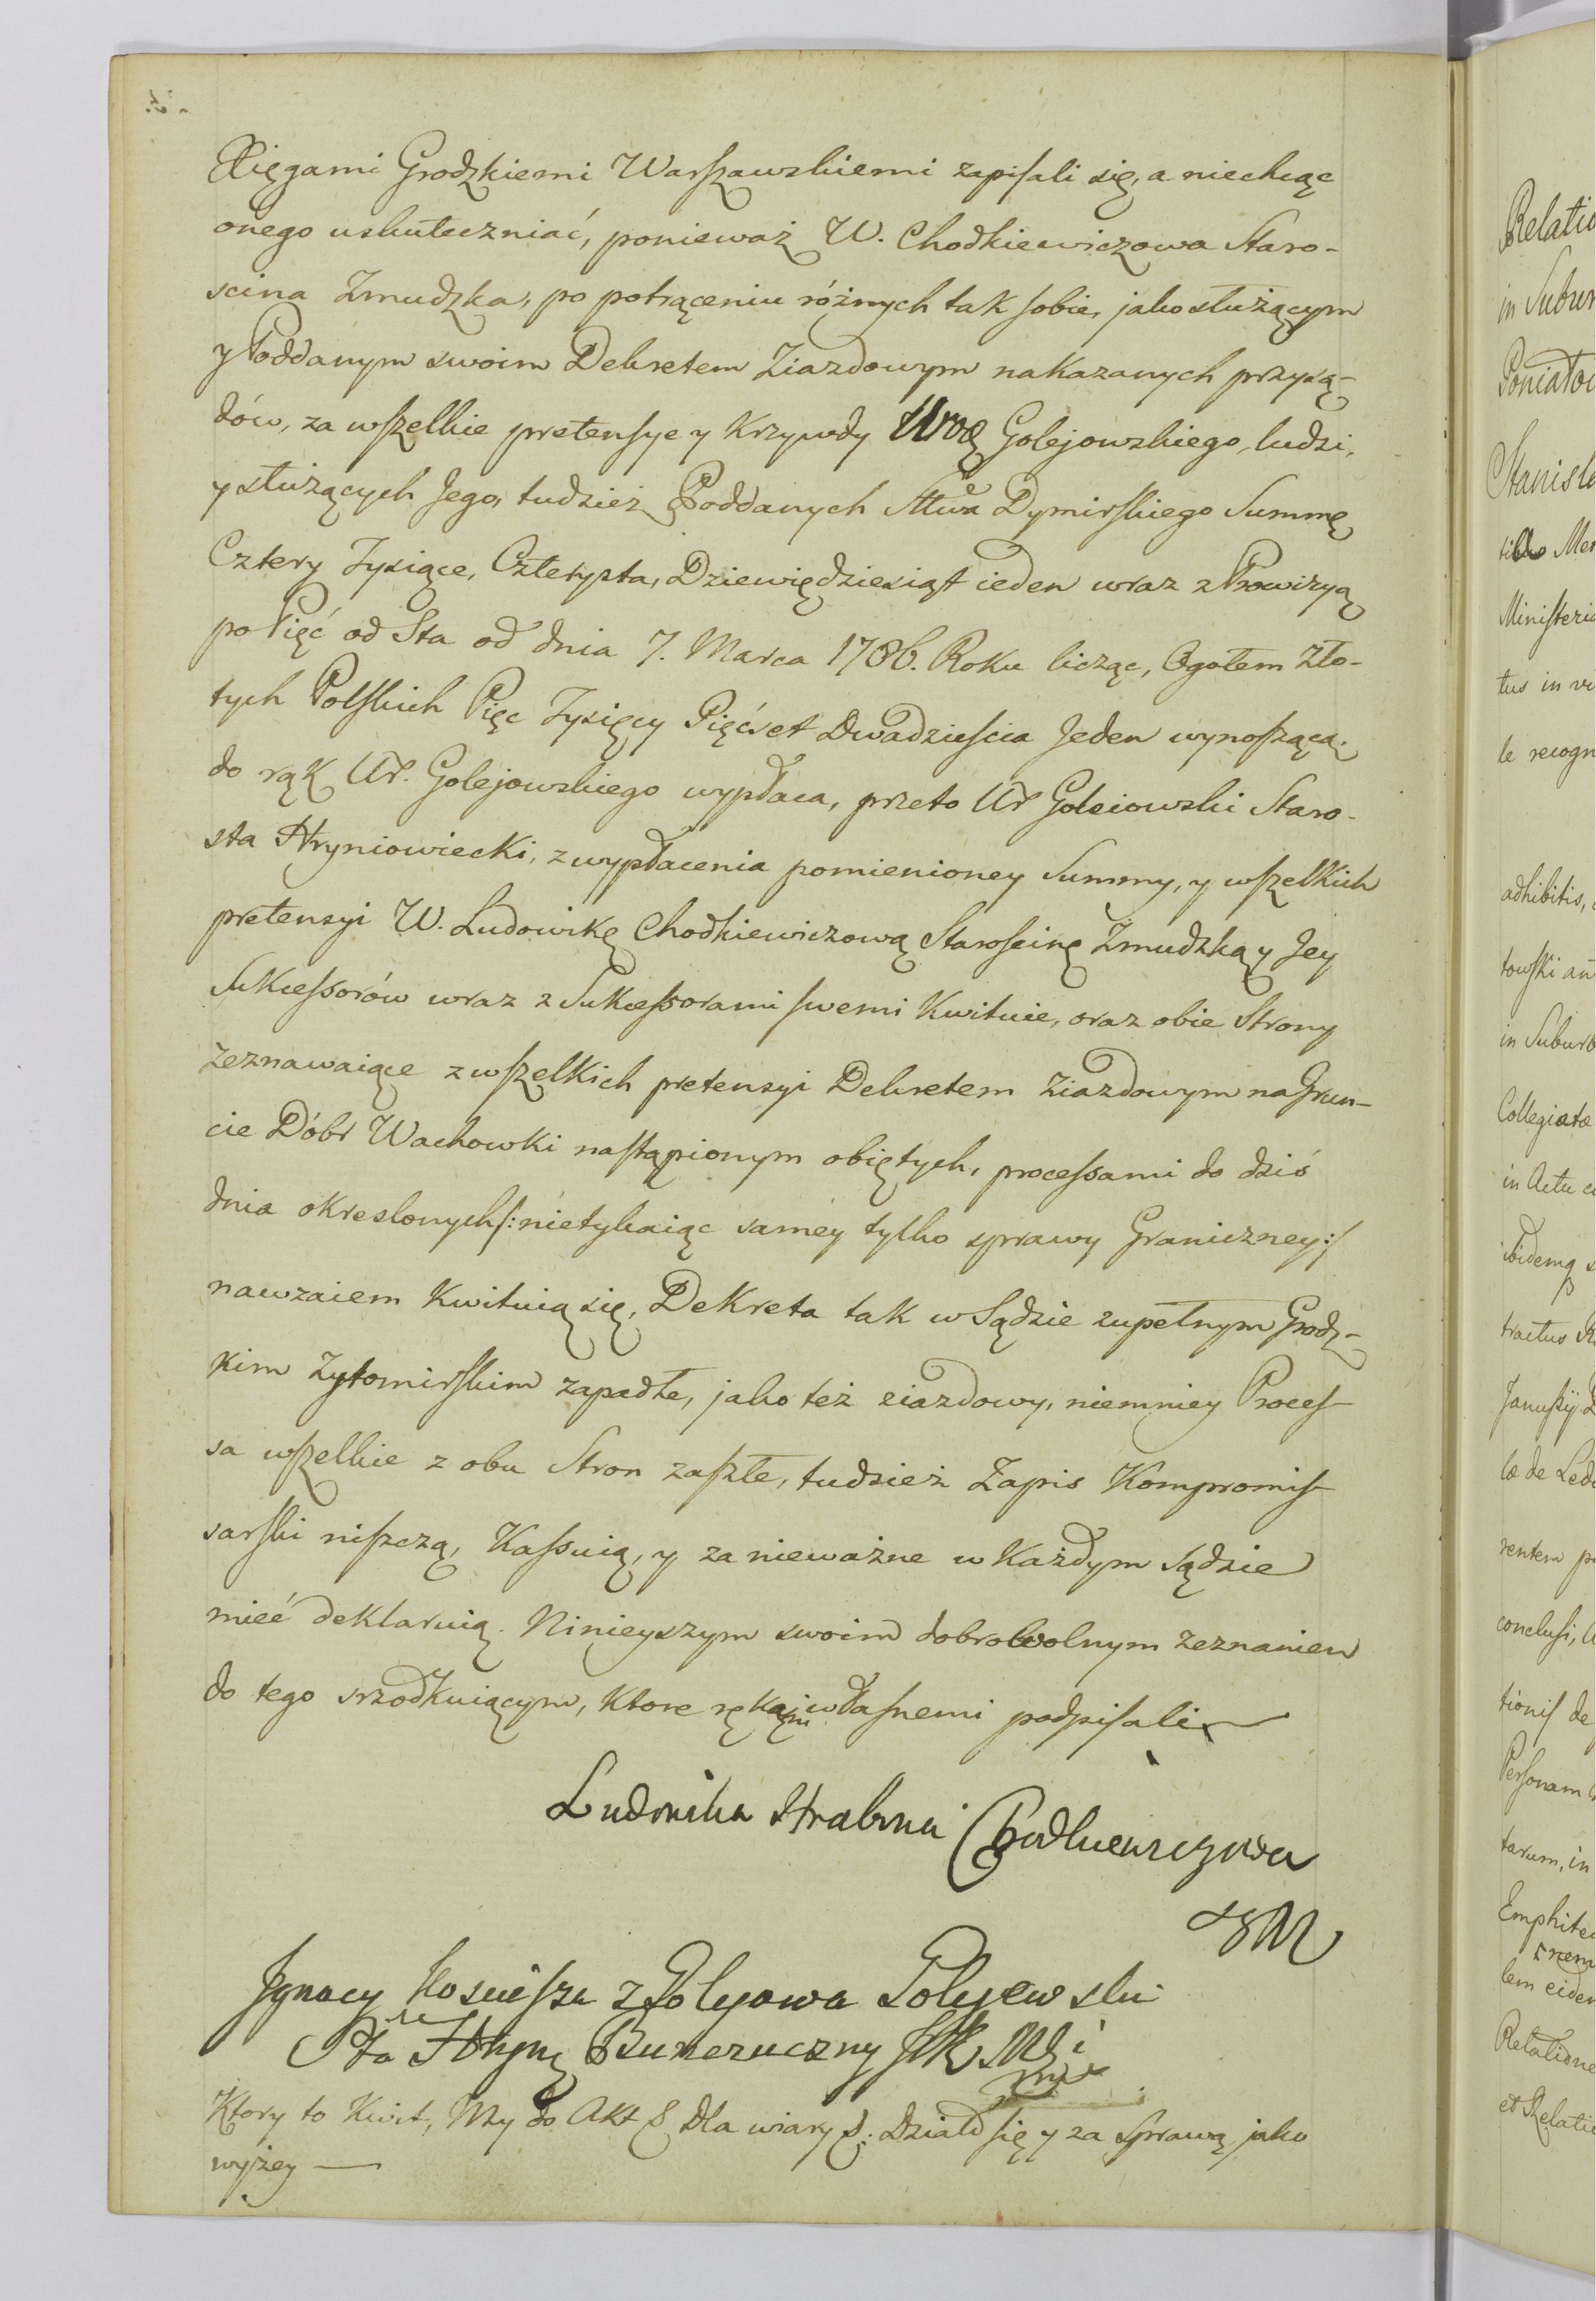 Xięgami Grodzkiemi Warszawskiemi zapisali się, a niechcąc
onego uskuteczniać, ponieważ W. Chodkiewiczowa Staro-
scina Zmudzka, po potrąceniu różnych tak sobie, jako służącym
y Poddanym swoim Dekretem Ziazdowym nakazanych przysą-
dów, za wszelkie pretensye y Krzywdy Uroę Golejowskiego, ludzi,
y służących Jego, tudzież Poddanych Sttwa Dymirskiego Summę
Cztery Tysiące, Czterysta, Dziewiędziesiąt ieden wraz z Prowizyą
po Pięć od Sta od dnia 7. Marca 1786. Roku licząc, Ogołem Zło-
tych Polskich Pięc Tysięcy Pięćset Dwadziescia Jeden wynoszącą;
do rąk Ur. Golejowskiego wypłaca, przeto Ur Goleiowski Staro-
sta Hryniowiecki, z wypłacenia pomienioney Summy, y wszelkich
pretensyi W. Ludowikę Chodkiewiczową Staroscinę Zmudzką y Jey
Sukcessorów wraz z Sukcessorami swemi Kwituie, oraz obie Strony
zeznawaiące z wszelkich pretensyi Dekretem Ziazdowym na Grun-
cie Dóbr Wachowki nastąpionym obiętych, processami do dziś
dnia okreslonych /: nietykaiąc samey tylko sprawy Graniczney :/
nawzaiem Kwituią się, Dekreta tak w Sądzie zupełnym Grodz-
kim Zytomirskim zapadłe, jako też ziazdowy, niemniey Proces-
sa wszelkie z obu Stron zaszłe, tudzież Zapis Kompromis-
sarski niszczą, Kassuią, y za nieważne w Każdym Sądzie
mieć deklaruią. Ninieyszym swoim dobrowolnym zeznaniem
do tego srzodkuiącym, Ktore rękami własnemi podpisali
Ludowika Hrabina Chodkiewiczowa
SXM
Ignacy Kosciesza z Golejowa Golejewski
Sta Hryni
Ktory to Kwit, My do Akt & Dla wiary &. Działo się y za Sprawą jako
wyżey
Relatio
in Subur
Poniatow
Stanisla
Ministeri
tus in
le recogn
adhibitis,
towski
in Subur
Collegiatæ
in Actu
ibidemq
tractus
Janussy
de Led
rentem
conclusi,
tionis de
Personam
tarum, in
Emphiteu
lem eidem
Relatione
et Relatio